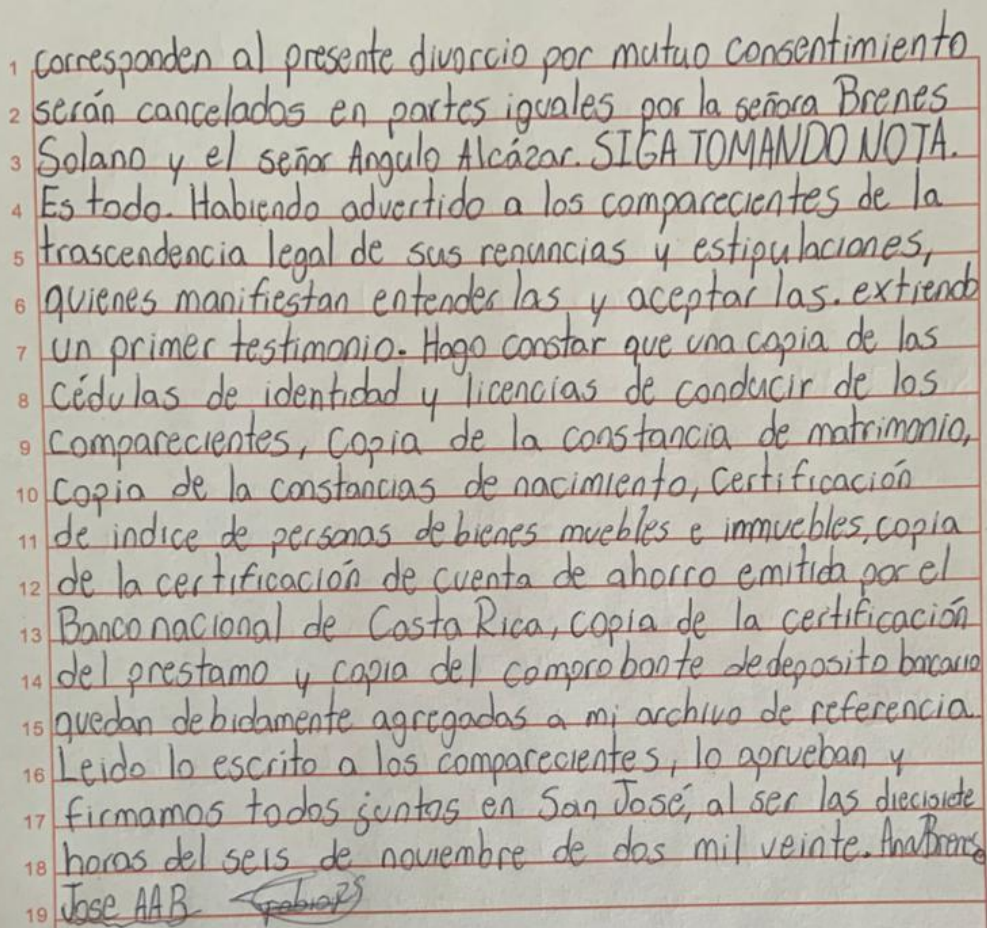 1 corresponden al presente divorcio por mutuo consentimiento
2 serán cancelados en partes iguales por la señora Brenes
3 Solano y el señor Angulo Alcázar. SIGA TOMANDO NOTA.
4 Es todo. Habiendo advertido a los comparecientes de la
5 trascendencia legal de sus renuncias y estipulaciones,
6 quienes manifiestan entender las y aceptar las. extiendo
7 un primer testimonio. Hago constar que una copia de las
8 cédulas de identidad y licencias de conducir de los
9 comparecientes, copia de la constancia de matrimonio,
10 copia de la constancias de nacimiento, certificación
11 de indice de personas de bienes muebles e inmuebles, copia
12 de la certificación de cuenta de ahorro emitida por el
13 Banco nacional de Costa Rica, copia de la certificación
14 del prestamo y copia del comprobante de deposito bancario
15 quedan debidamente agregadas a mi archivo de referencia.
16 Leido lo escrito a los comparecientes, lo aprueban y
17 firmamos todos juntos en San José, al ser las diecisiete
18 horas del seis de noviembre de dos mil veinte. Ana Brenes
19 Jose AAB